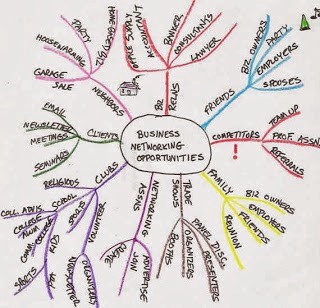 BUSINESS
NETWORKING
OPPORTUNITIES
BIZ
RELNS
BANKER
CONSULTANTS
LAWYER
ACCOUNTANT
FRIENDS
BIZ OWNERS
PARTY
EMPLOYERS
SPOUSES
COMPETITORS
!
TEAM UP
PROF. ASSN.
REFERRALS
FAMILY
BIZ OWNERS
EMPLOYERS
FRIENDS
REUNION
TRADE
SHOWS
PANEL DISC.
PRESENTERS
ORGANIZERS
BOOTHS
NETWORKING
ASSNS
ADVERTISE
JOIN
CLUBS
RELIGIOUS
SCHOOL
COLL. ADVIS.
COLLEGE
ALUM
COMM COLLEGE
KID
SPORTS
PTA
SPORTS
VOLUNTEER
ORGANIZATIONS
CLIENTS
EMAIL
NEWSLETTER
MEETINGS
SEMINARS
NEIGHBORS
PARTY
HOUSEWARMING
GARAGE
SALE